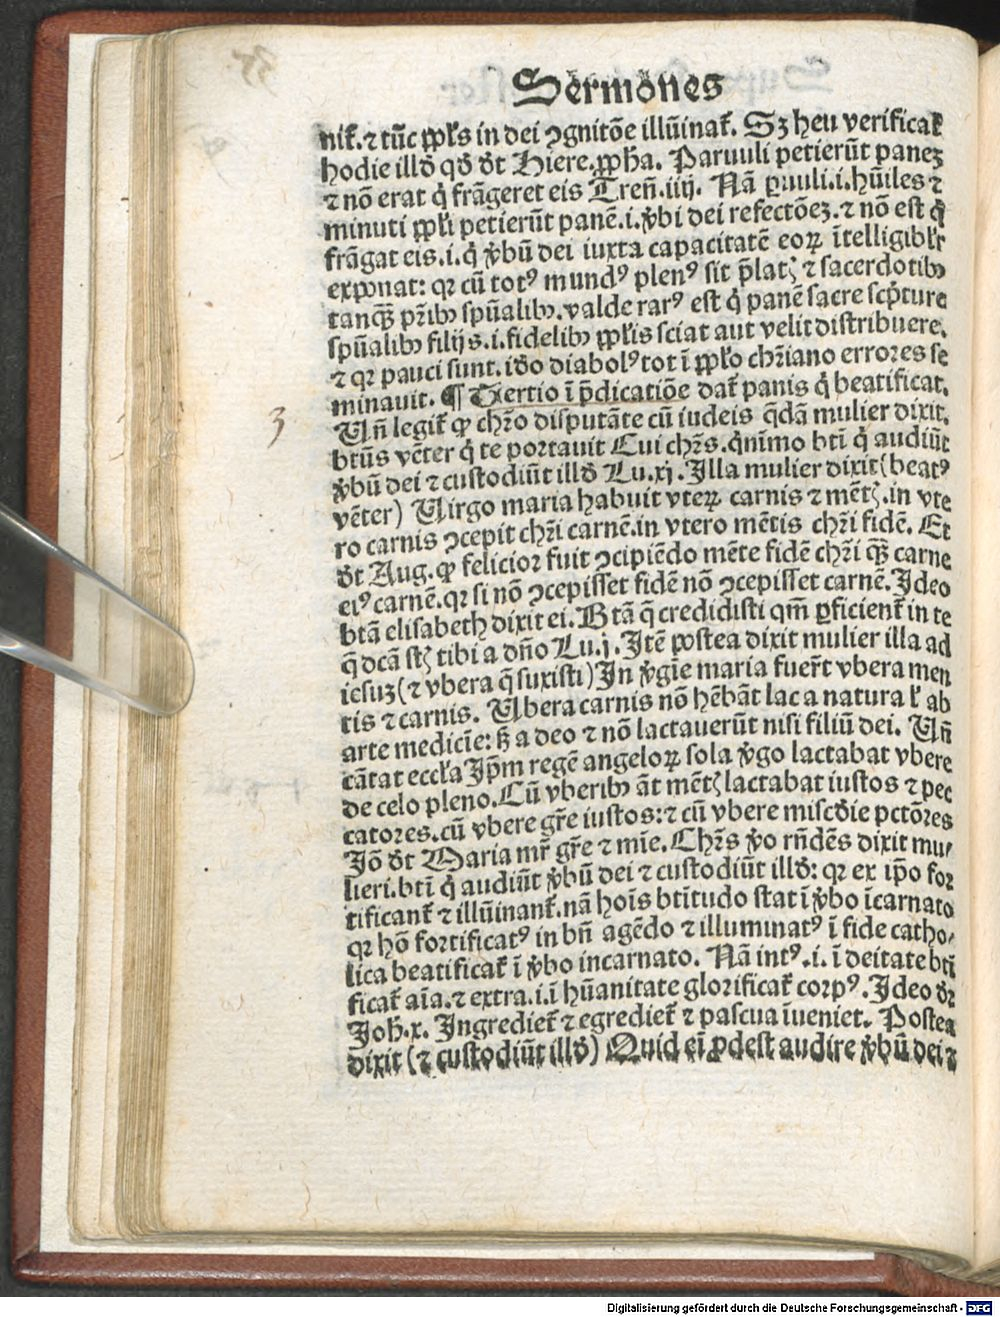 Sermones
nit᷑. ⁊ tūc ppl̄s in dei ꝯgnitōe illūinat᷑. Sꝫ heu verificat᷑
hodie illđ qđ đt Hiere. ꝓph̄a. Paruuli petierūt paneꝫ
⁊ nō erat q̇ frāgeret eis Tren̄. iiij. Nā ꝑuuli .i. hūiles ⁊
minuti ppl̄i petierūt panē .i. v̄bi dei refectōeꝫ. ⁊ nō est q̇
frāgat eis .i. q̇ v̄bū dei iuxta capacitatē eoꝝ ītelligibl̄r
exponat: qꝛ cū totꝰ mundꝰ plenꝰ sit p̄latꝭ ⁊ sacerdotibꝰ
tanqꝫ̄ pr̄ibꝰ spūalibꝰ. valde rarꝰ est q̇ panē sacre scp̄ture
spūalibꝰ filijs .i. fidelibꝰ ppl̄is sciat aut velit distribuere.
⁊ qꝛ pauci sunt. iđo diabolꝰ tot ī ppl̄o chr̄iano errores se
minauit. ¶ Tertio ī p̄dicatiōe dat᷑ panis q̇ beatificat.
Vn̄ legit᷑ ꝙ chr̄o disputāte cū iudeis q̄dā mulier dixit.
btūs vēter q̇ te portauit Cui chr̄s. q̇nīmo btī q̇ audiūt
v̄bū dei ⁊ custodiūt illđ Lu. xj. Illa mulier dixit (beatꝰ
vēter) Virgo maria habuit vteꝝ carnis ⁊ mētꝭ. in vte
ro carnis ꝯcepit chr̄i carnē. in vtero mētis chr̄i fidē. Et
đt Aug. ꝙ felicior fuit ꝯcipiēdo mēte fidē chr̄i qꝫ̄ carne
eiꝰ carnē. qꝛ si nō ꝯcepisset fidē nō ꝯcepisset carnē. Ideo
btā elisabeth dixit ei. Btā q̄ credidisti qm̄ ꝑficient᷑ in te
q̄ dcā stꝭ tibi a dn̄o Lu. j. Itē postea dixit mulier illa ad
iesuꝫ (⁊ vbera q̄ suxisti) In v̄gīe maria fuer̄t vbera men
tis ⁊ carnis. Vbera carnis nō hēbāt lac a natura l̄ ab
arte medicīe: sꝫ a deo ⁊ nō lactauerūt nisi filiū dei. Vn̄
cātat eccl̄a Ip̄m regē angeloꝝ sola v̄go lactabat vbere
de celo pleno. Cū vberibꝰ āt mētꝭ lactabat iustos ⁊ pec
catores. cū vbere gr̄e iustos: ⁊ cū vbere miscđie pctōres
Iō đt Maria mr̄ gr̄e ⁊ mīe. Chr̄s v̄o rn̄dēs dixit mu⸗
lieri. btī q̇ audiūt v̄bū dei ⁊ custodiūt illđ: qꝛ ex ip̄o for
tificant᷑ ⁊ illūinant᷑. nā hoīs btītudo stat ī v̄bo īcarnato
qꝛ hō fortificatꝰ in bn̄ agēdo ⁊ illuminatꝰ ī fide catho⸗
lica beatificat᷑ ī v̄bo incarnato. Nā intꝰ .i. ī deitate btī
ficat᷑ aīa. ⁊ extra .i. ī hūanitate glorificat᷑ corpꝰ. Ideo đr
Joh̄. x. Ingrediet᷑ ⁊ egrediet᷑ ⁊ pascua īueniet. Postea
dixit (⁊ custodiūt illđ) Quid ei ꝓdest audire v̄bū dei ⁊
3
Digitalisierung gefördert durch die Deutsche Forschungsgemeinschaft - DFG